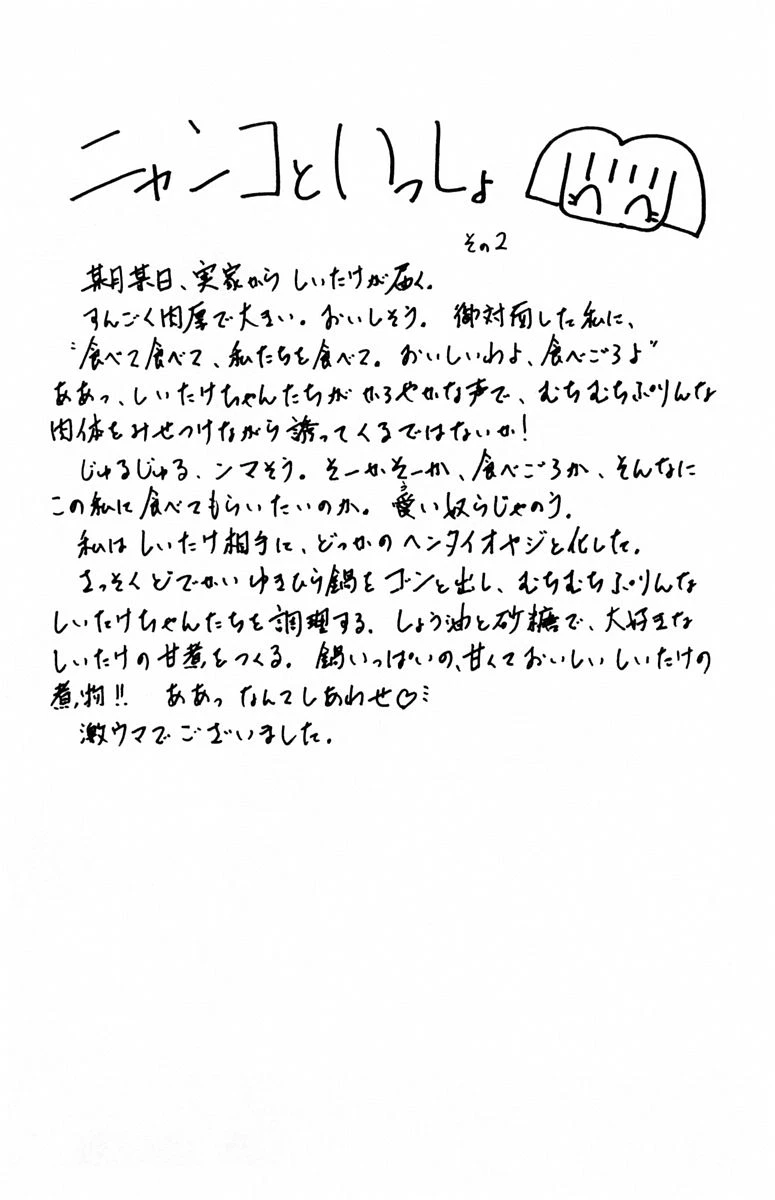 ニャンコといっしょ
その2
某月某日、実家からしいたけが届く。
すんごく肉厚で大きい。おいしそう。御対面した私に、
"食べて食べて、私たちを食べて。おいしいわよ、食べごろよ"
ああっ、しいたけちゃんたちがかろやかな声で、むちむちぷりんな
肉体をみせつけながら誘ってくるではないか!
じゅるじゅる、ンマそう。そーかそーか、食べごろか、そんなに
この私に食べてもらいたいのか。愛い奴らじゃのう。
私はしいたけ相手に、どっかのヘンタイオヤジと化した。
さっそくどでかいゆきひら鍋をゴンと出し、むちむちぷりんな
しいたけちゃんたちを調理する。しょう油と砂糖で、大好きな
しいたけの甘煮をつくる。鍋いっぱいの、甘くておいしいしいたけの
煮物!! ああっなんてしあわせ♡
激ウマでございました。